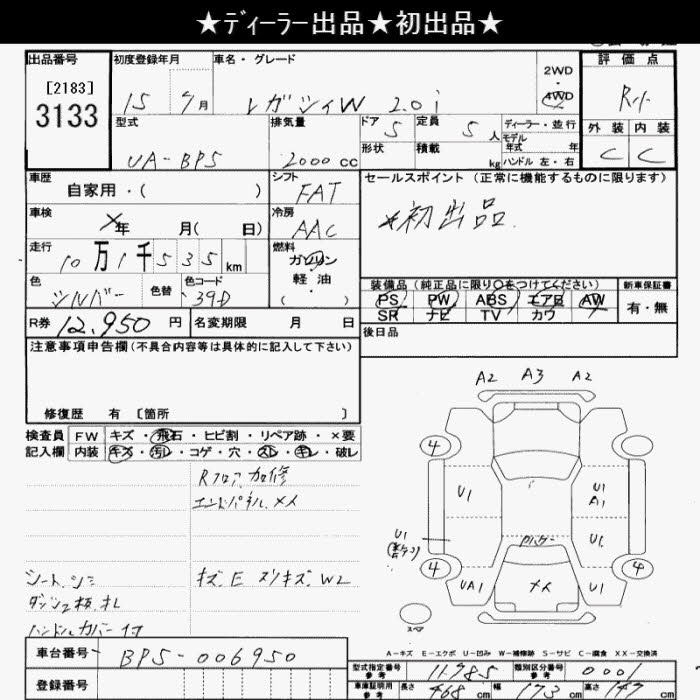 ★ディーラー出品★初出品★
出品番号 初度登録年月 車名・グレード 2WD 評価点
[2183] 3133 15 7月 レガシィW 2.0i 4WD R
外装 内装
C C
型式 排気量 ドア 定員 ディーラー・並行
UA-BP5 2000cc 5 5人 モデル年式 年
形状 積載 kg ハンドル 左・右
車歴 シフト セールスポイント(正常に機能するものに限ります)
自家用・( ) FAT ★初出品.
車検 冷房
×年 月( 日) AAC
走行 燃料
10万1千535km ガソリン
軽油
( ・ )
色 色替 色コード
シルバー 39D
装備品(純正品に限り○をつけてください) 新車保証書
PS PW ABS エアB AW 有・無
SR ナビ TV カワ
R券 12,950円 名変期限 月 日 後日品
注意事項申告欄(不具合内容等は具体的に記入して下さい)
修復歴 有 [箇所 ]
検査員記入欄 FW キズ・飛石・ヒビ割・リペア跡・×要
内装 キズ・汚レ・コゲ・穴・スレ・キレ・破レ
Rフロア加修
エンドパネル.メメ
シート.シミ キズ.E スリキズ.W2
ハンドルカバー付
A2 A3 A2
4
U1 U1
A1
U1 U1
4 4
UA1 メメ U1
スペア
A-キズ E-エクボ U-凹み W-補修跡 S-サビ C-腐食 XX-交換済
車台番号 BP5-006950
登録番号
型式指定番号 参考 11785 類別区分番号 参考 0001
車庫証明用 参考 長さ 468cm 幅 173cm 高さ 147cm